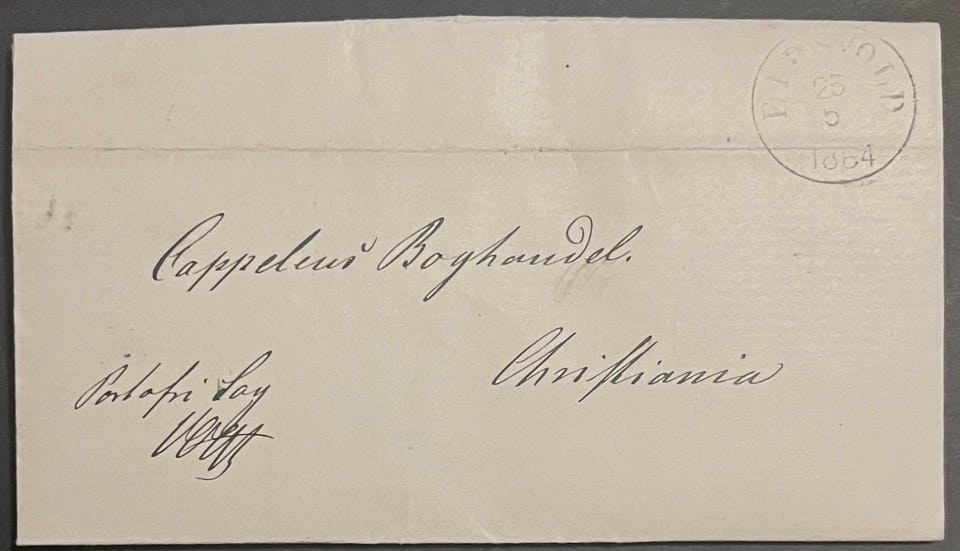 EIDSVOLD
25
5
1864
Cappelens Boghandel.
Christiania
Portofri Sag